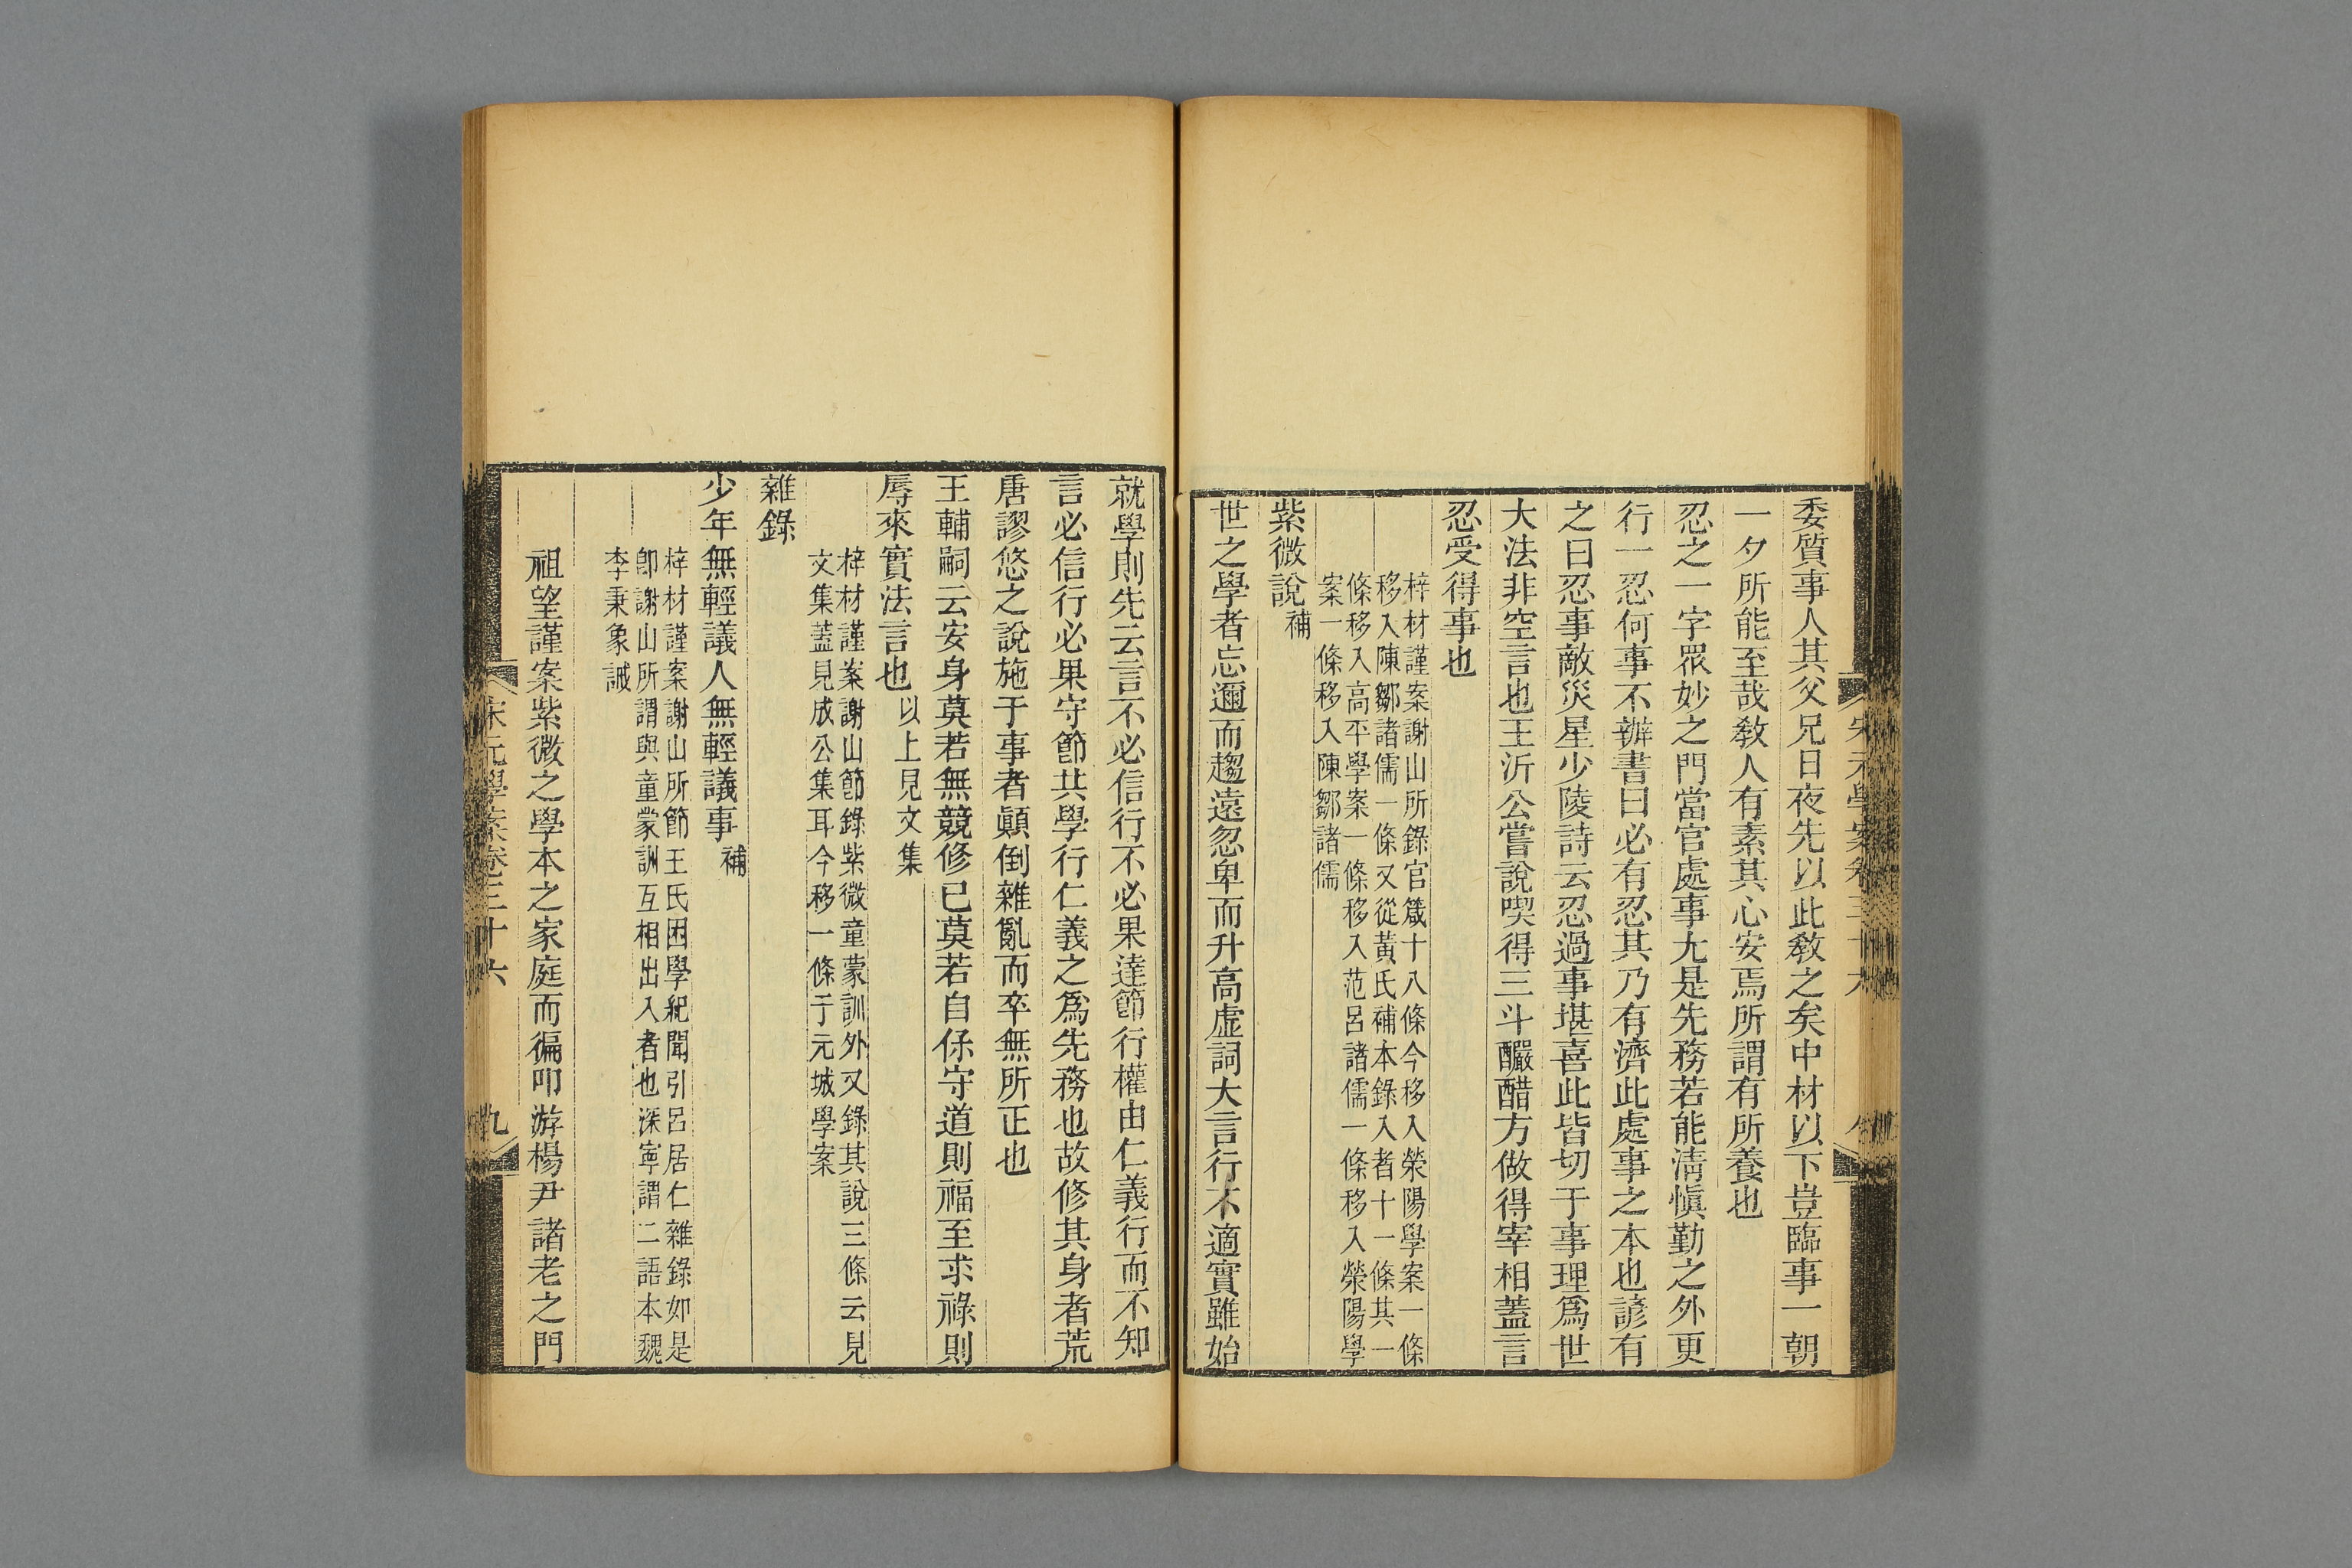 委質事人其父兄日夜先以此敎之矣中材以下豈臨事一朝
一夕所能至哉敎人有素其心安焉所謂有所養也
忍之一字眾妙之門當官處事尤是先務若能淸愼勤之外更
行一忍何事不辦書曰必有忍其乃有濟此處事之本也諺有
之曰忍事敵災星少陵詩云忍過事堪喜此皆切于事理爲世
大法非空言也王沂公嘗說喫得三斗釅醋方做得宰相蓋言
忍受得事也
梓材謹案謝山所錄官箴十八條今移入滎陽學案一條
移入陳鄒諸儒一條又從黃氏補本錄入者十一條其一
條移入高平學案一條移入范呂諸儒一條移入滎陽學
案一條移入陳鄒諸儒
紫微說補
世之學者忘邇而趨遠忽卑而升高虛詞大言行不適實雖始
就學則先云言不必信行不必果達節行權由仁義行而不知
言必信行必果守節共學行仁義之爲先務也故修其身者荒
唐謬悠之說施于事者顚倒雜亂而卒無所正也
王輔嗣云安身莫若無競修已莫若自保守道則福至求祿則
辱來實法言也以上見文集
梓材謹案謝山節錄紫微童蒙訓外又錄其說三條云見
文集蓋見成公集耳今移一條于元城學案
雜錄
少年無輕議人無輕議事補
梓材謹案謝山所節王氏困學紀聞引呂居仁雜錄如是
卽謝山所謂與童蒙訓互相出入者也深寧謂二語本魏
李秉象誡
祖望謹案紫微之學本之家庭而徧叩游楊尹諸老之門
宋元學案卷三十六
九